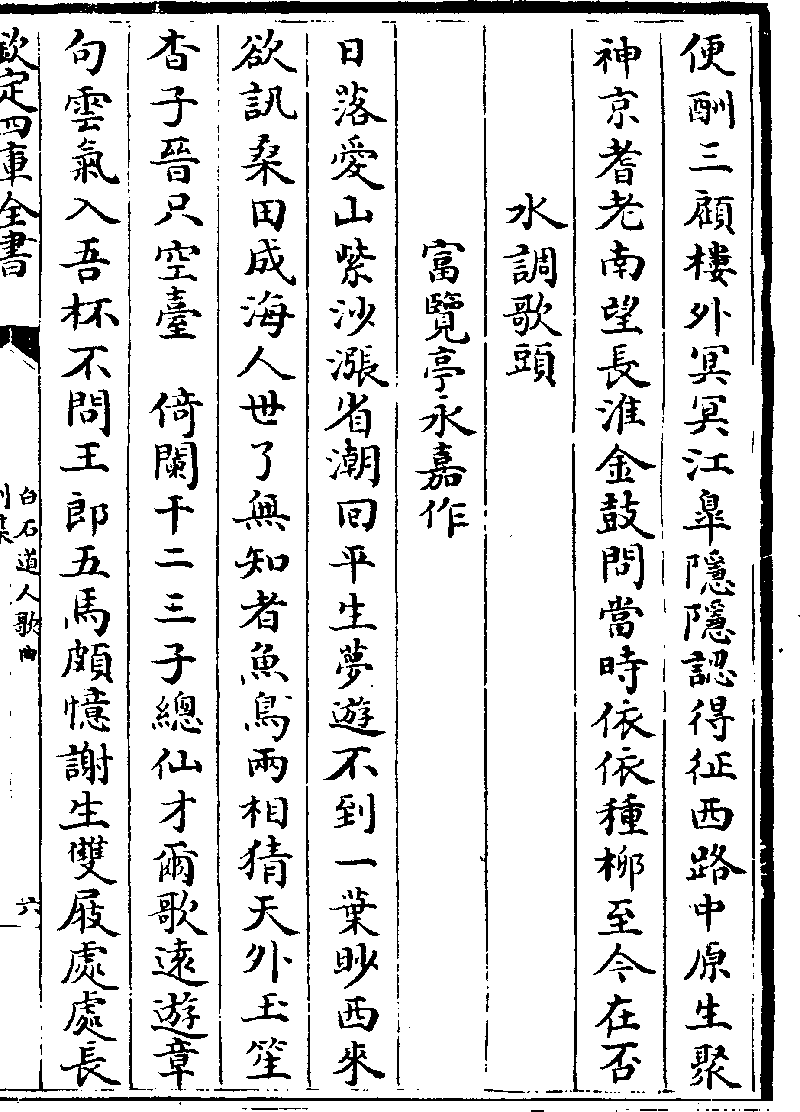 便酬三顧樓外冥冥江臯隱隱認得征西路中原生聚
神京耆老南望長淮金鼓問當時依依種栁至今在否
水調歌頭
富覽亭永嘉作
日落愛山紫沙漲省潮回平生夢遊不到一葉眇西來
欲訊桑田成海人世了無知者魚鳥兩相猜天外玉笙
杳子晉只空臺　倚闌干二三子總仙才爾歌逺遊章
句雲氣入吾杯不問王郎五馬頗憶謝生雙屐處處長
欽定四庫全書
白石道人歌曲
別集
六